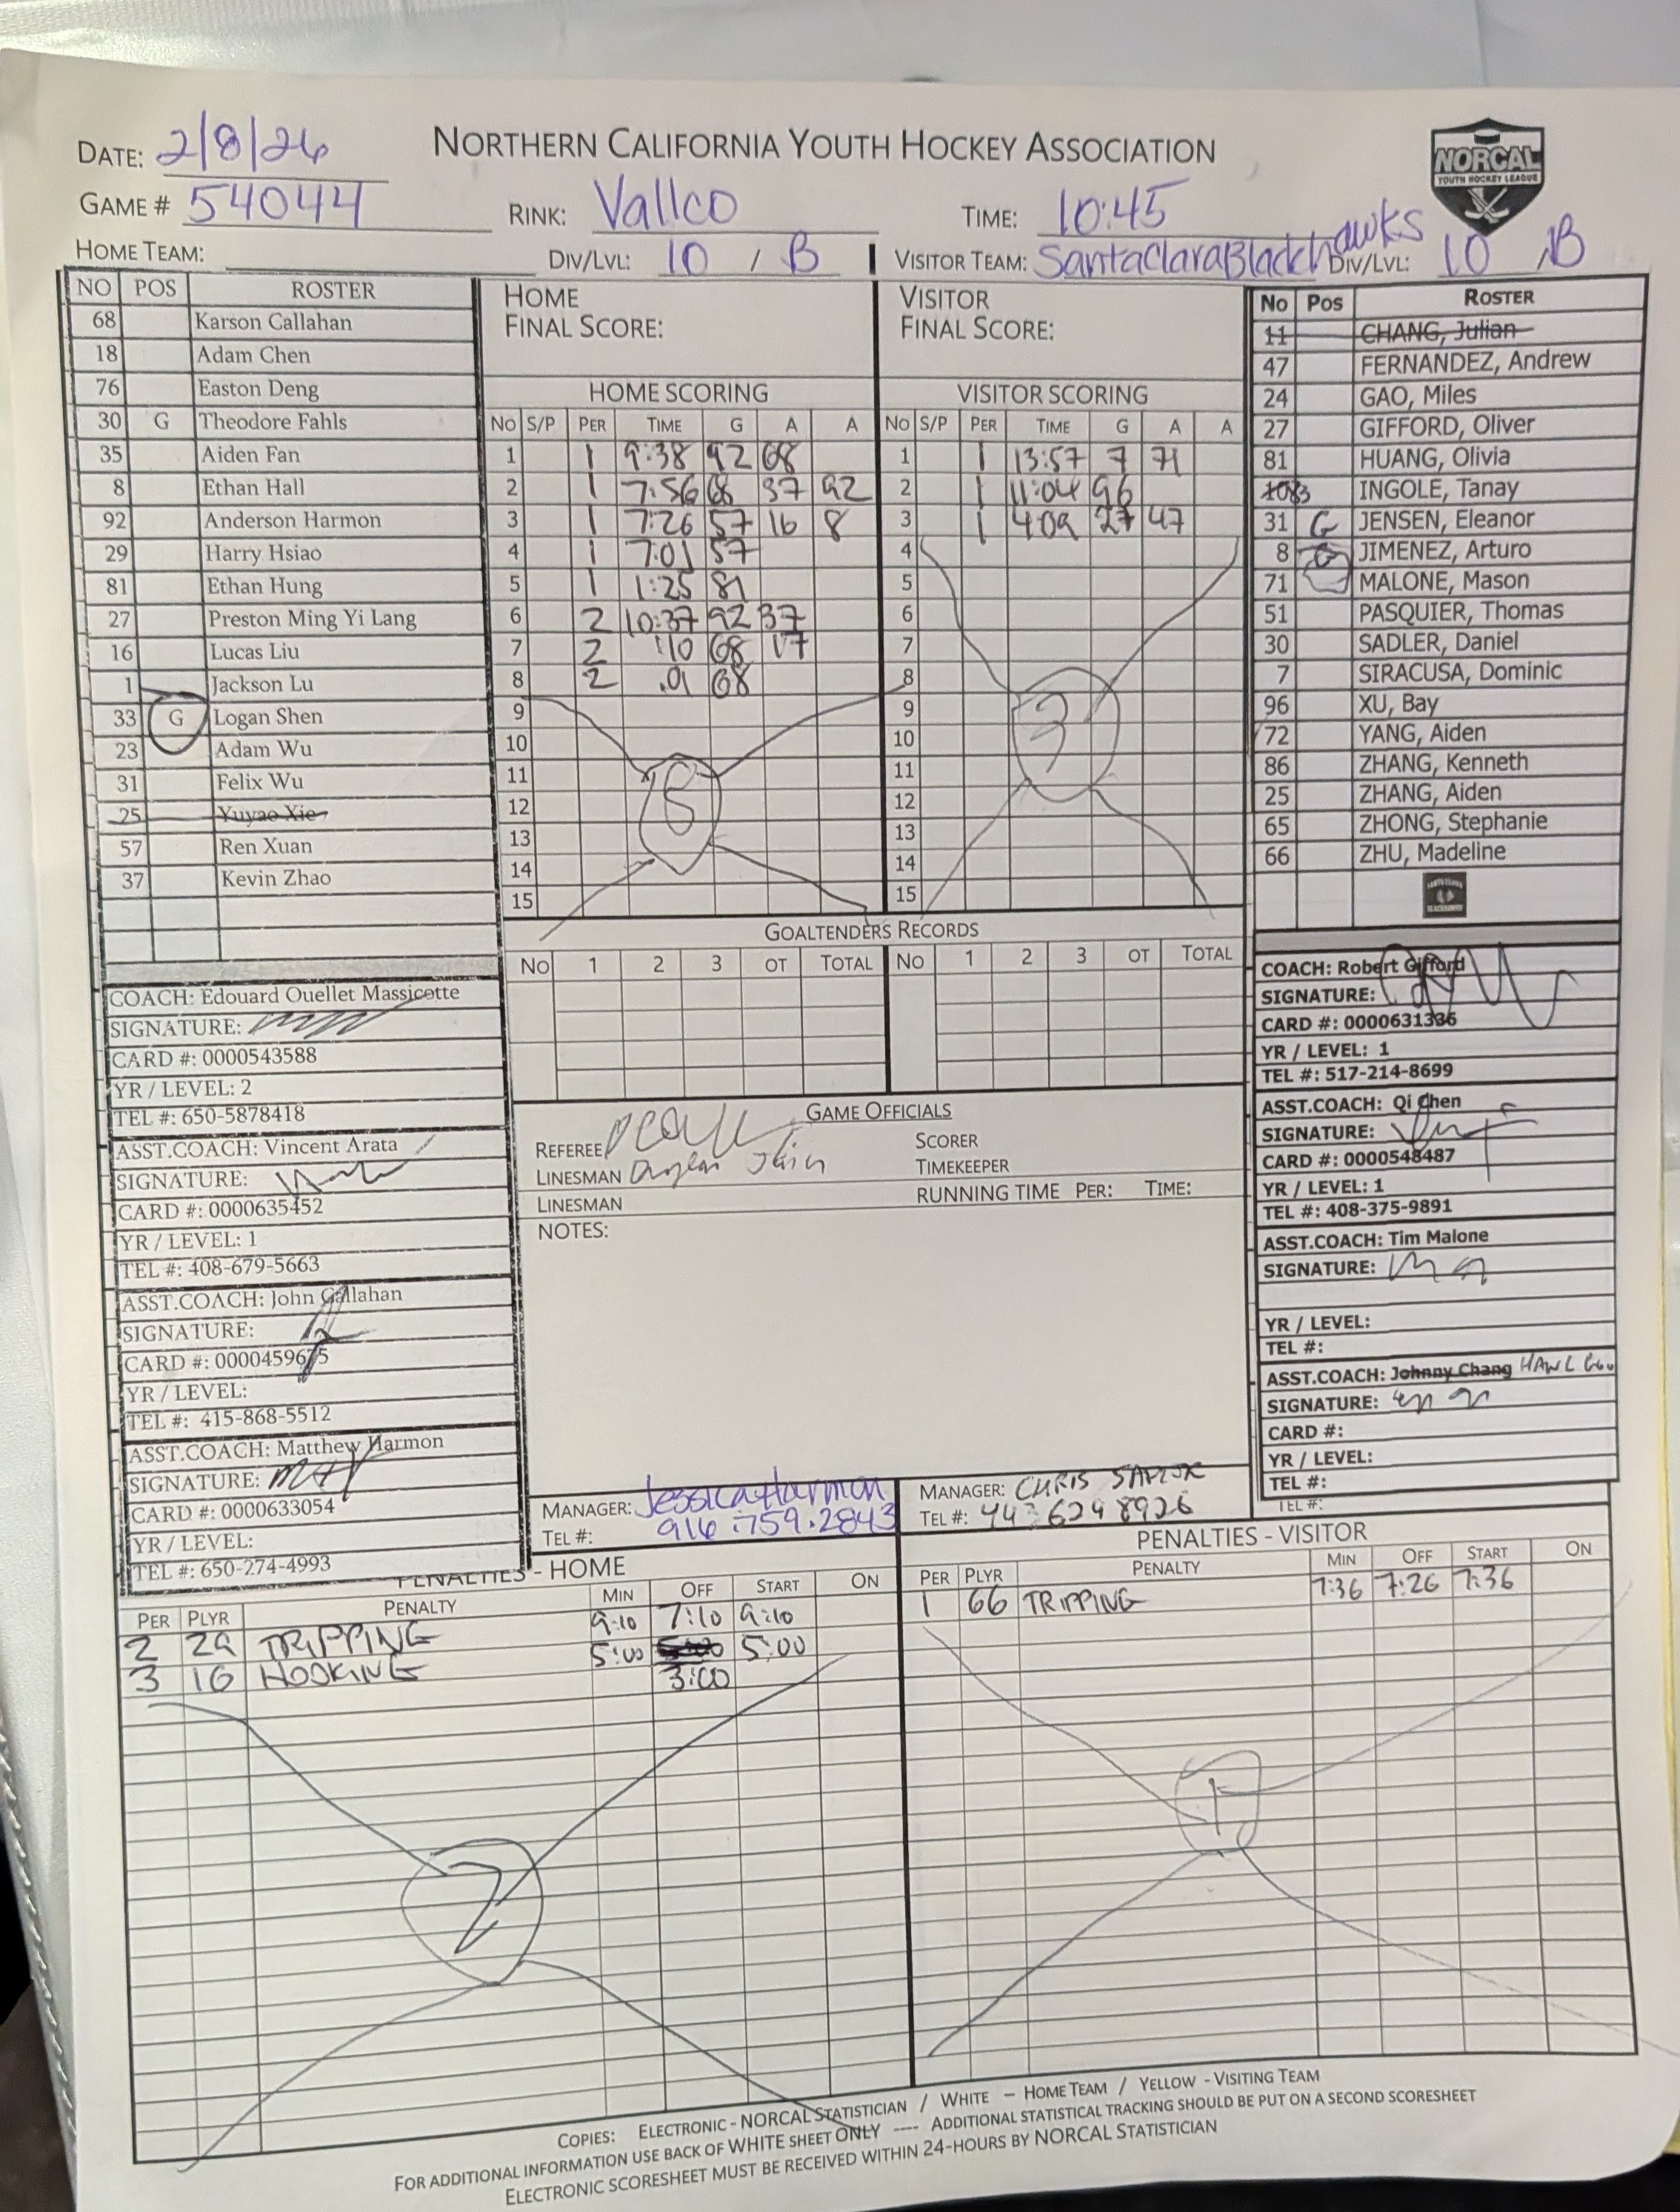 NORTHERN CALIFORNIA YOUTH HOCKEY ASSOCIATION
NORCAL
YOUTH HOCKEY LEAGUE
DATE: 2/8/26
GAME # 54044 RINK: Vallco TIME: 10:45
HOME TEAM: DIV/LVL: 10 / B VISITOR TEAM: SantaClaraBlackhawks DIV/LVL: 10 / B
NO POS ROSTER
68 Karson Callahan
18 Adam Chen
76 Easton Deng
30 G Theodore Fahls
35 Aiden Fan
8 Ethan Hall
92 Anderson Harmon
29 Harry Hsiao
81 Ethan Hung
27 Preston Ming Yi Lang
16 Lucas Liu
1 Jackson Lu
33 G Logan Shen
23 Adam Wu
31 Felix Wu
25 Yuyao Xie
57 Ren Xuan
37 Kevin Zhao
HOME
FINAL SCORE:
HOME SCORING
NO S/P PER TIME G A A
1 1 9:38 92 68
2 1 7:56 68 37 92
3 1 7:26 57 16 8
4 1 7:01 57
5 1 1:25 81
6 2 10:37 92 37
7 2 :10 68 17
8 2 .01 68
9
10
11
12
13
14
15
VISITOR
FINAL SCORE:
VISITOR SCORING
NO S/P PER TIME G A A
1 1 13:57 7 71
2 1 11:04 96
3 1 4:09 27 47
4
5
6
7
8
9
10
11
12
13
14
15
3
No Pos ROSTER
11 CHANG, Julian
47 FERNANDEZ, Andrew
24 GAO, Miles
27 GIFFORD, Oliver
81 HUANG, Olivia
INGOLE, Tanay
31 G JENSEN, Eleanor
8 JIMENEZ, Arturo
71 MALONE, Mason
51 PASQUIER, Thomas
30 SADLER, Daniel
7 SIRACUSA, Dominic
96 XU, Bay
72 YANG, Aiden
86 ZHANG, Kenneth
25 ZHANG, Aiden
65 ZHONG, Stephanie
66 ZHU, Madeline
GOALTENDERS RECORDS
NO 1 2 3 OT TOTAL NO 1 2 3 OT TOTAL
COACH: Edouard Ouellet Massicotte
SIGNATURE:
CARD #: 0000543588
YR / LEVEL: 2
TEL #: 650-5878418
ASST.COACH: Vincent Arata
SIGNATURE:
CARD #: 0000635452
YR / LEVEL: 1
TEL #: 408-679-5663
ASST.COACH: John Callahan
SIGNATURE:
CARD #: 0000459675
YR / LEVEL:
TEL #: 415-868-5512
ASST.COACH: Matthew Harmon
SIGNATURE:
CARD #: 0000633054
YR / LEVEL:
TEL #: 650-274-4993
GAME OFFICIALS
REFEREE SCORER
LINESMAN TIMEKEEPER
LINESMAN RUNNING TIME PER: TIME:
NOTES:
MANAGER: Jessica Harmon
TEL #: 916.759.2843
MANAGER: CHRIS
TEL #: 443 624 8926
COACH: Robert Gifford
SIGNATURE:
CARD #: 0000631336
YR / LEVEL: 1
TEL #: 517-214-8699
ASST.COACH: Qi Chen
SIGNATURE:
CARD #: 0000548487
YR / LEVEL: 1
TEL #: 408-375-9891
ASST.COACH: Tim Malone
SIGNATURE:
YR / LEVEL:
TEL #:
ASST.COACH: Johnny Chang
SIGNATURE:
CARD #:
YR / LEVEL:
TEL #:
TEL #:
PENALTIES - HOME
PER PLYR PENALTY MIN OFF START ON
2 29 TRIPPING 9:10 7:10 9:10
3 16 HOOKING 5:00 3:00 5:00
2
PENALTIES - VISITOR
PER PLYR PENALTY MIN OFF START ON
1 66 TRIPPING 7:36 7:26 7:36
1
COPIES: ELECTRONIC - NORCAL STATISTICIAN / WHITE – HOME TEAM / YELLOW - VISITING TEAM
FOR ADDITIONAL INFORMATION USE BACK OF WHITE SHEET ONLY ---- ADDITIONAL STATISTICAL TRACKING SHOULD BE PUT ON A SECOND SCORESHEET
ELECTRONIC SCORESHEET MUST BE RECEIVED WITHIN 24-HOURS BY NORCAL STATISTICIAN